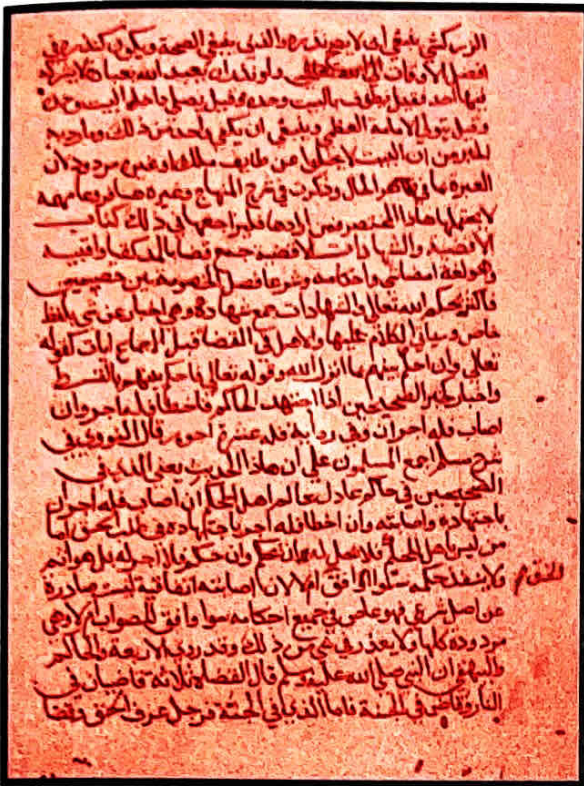 الزركشي ينبغي ان لا يصح نذره والذي ينبغي الصحة ويكون كنذره في
افضل الاوقات ولو نذر ان يعبد الله بعبادة لا يشركه
فيها احد فقيل يطوف بالبيت وحده وقيل يصلي داخل البيت وحده
وقيل يتولى الامامة العظمى وينبغي ان يكفي واحد من ذلك وما رد به
من ان البيت لا يخلوا عن طايف ملك او غيره مردود لان
العبرة بما في ظاهر الحال وذكرت في شرح المنهاج وغيره هنا فروعا مهمة
لا يحتملها هذا المختصر فمن ارادها فليراجعها في ذلك كتاب
الاقضية والشهادات الاقضية جمع قضا بالمد كقبا واقبية
وهو لغة امضا الشي واحكامه وشرعا فصل الخصومة بين خصمين
فاكثر بحكم الله تعالى والشهادات جمع شهادة وهي اخبار عن شي بلفظ
خاص وسياتي الكلام عليها والاصل في القضا قبل الاجماع ايات كقوله
تعالى وان احكم بينهم بما انزل الله وقوله تعالى فاحكم بينهم بالقسط
واخبار كخبر الصحيحين اذا اجتهد الحاكم فاخطا فله اجر وان
اصاب فله اجران وفي رواية فله عشرة اجور قال النووي في
شرح مسلم اجمع المسلمون على ان هذا الحديث يعني الذي في
الصحيحين في حاكم عادل عالم اهل للحكم ان اصاب فله اجران
باجتهاده واصابته وان اخطا فله اجر باجتهاده في طلب الحق اما
من ليس باهل للحكم فلا يحل له ان يحكم وان حكم فلا اجر له بل هو اثم
ولا ينفذ حكمه سوا وافق الحق ام لا لان اصابته اتفاقية ليست صادرة
عن اصل شرعي فهو عاص في جميع احكامه سوا وافق الصواب ام لا وهي
مردودة كلها ولا يعذر في شي من ذلك وقد روى الاربعة والحاكم
والبيهقي ان النبي صلى الله عليه وسلم قال القضاة ثلاثة قاضيان في
النار وقاض في الجنة فاما الذي في الجنة فرجل عرف الحق وقضا